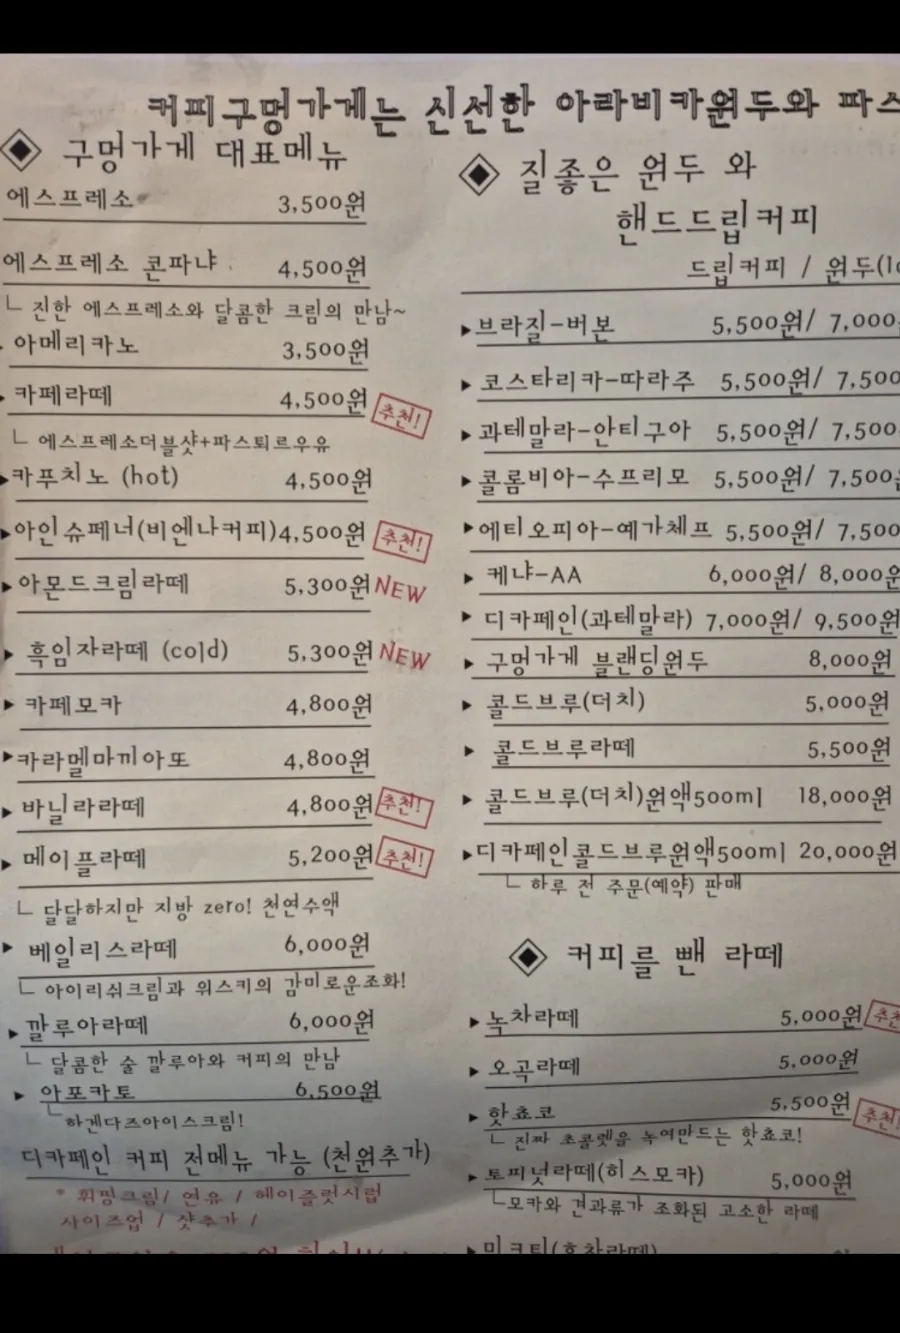 커피구멍가게는 신선한 아라비카원두와 파스
구멍가게 대표메뉴
에스프레소 3,500원
에스프레소 콘파냐 4,500원
ㄴ 진한 에스프레소와 달콤한 크림의 만남~
아메리카노 3,500원
카페라떼 4,500원 추천!
ㄴ 에스프레소더블샷+파스퇴르우유
카푸치노 (hot) 4,500원
아인슈페너(비엔나커피)4,500원 추천!
아몬드크림라떼 5,300원 NEW
흑임자라떼 (cold) 5,300원 NEW
카페모카 4,800원
카라멜마끼아또 4,800원
바닐라라떼 4,800원 추천!
메이플라떼 5,200원 추천!
ㄴ 달달하지만 지방 zero! 천연수액
베일리스라떼 6,000원
ㄴ 아이리쉬크림과 위스키의 감미로운조화!
깔루아라떼 6,000원
ㄴ 달콤한 술 깔루아와 커피의 만남
아포카토 6,500원
ㄴ 하겐다즈아이스크림!
디카페인 커피 전메뉴 가능 (천원추가)
* 휘핑크림/ 연유 / 헤이즐럿시럽
사이즈업 / 샷추가 /
질좋은 원두 와
핸드드립커피
드립커피 / 원두(10
브라질-버본 5,500원/ 7,000
코스타리카-따라주 5,500원/ 7,500
과테말라-안티구아 5,500원/ 7,500
콜롬비아-수프리모 5,500원/ 7,500
에티오피아-예가체프 5,500원/ 7,500
케냐-AA 6,000원/ 8,000원
디카페인(과테말라) 7,000원/ 9,500원
구멍가게 블랜딩원두 8,000원
콜드브루(더치) 5,000원
콜드브루라떼 5,500원
콜드브루(더치)원액500ml 18,000원
디카페인콜드브루원액500ml 20,000원
ㄴ 하루 전 주문(예약) 판매
커피를 뺀 라떼
녹차라떼 5,000원 추천
오곡라떼 5,000원
핫쵸코 5,500원 추천!
ㄴ 진짜 초콜렛을 녹여만드는 핫쵸코!
토피넛라떼(히스모카) 5,000원
ㄴ모카와 견과류가 조화된 고소한 라떼
밀크티(홍차라떼)